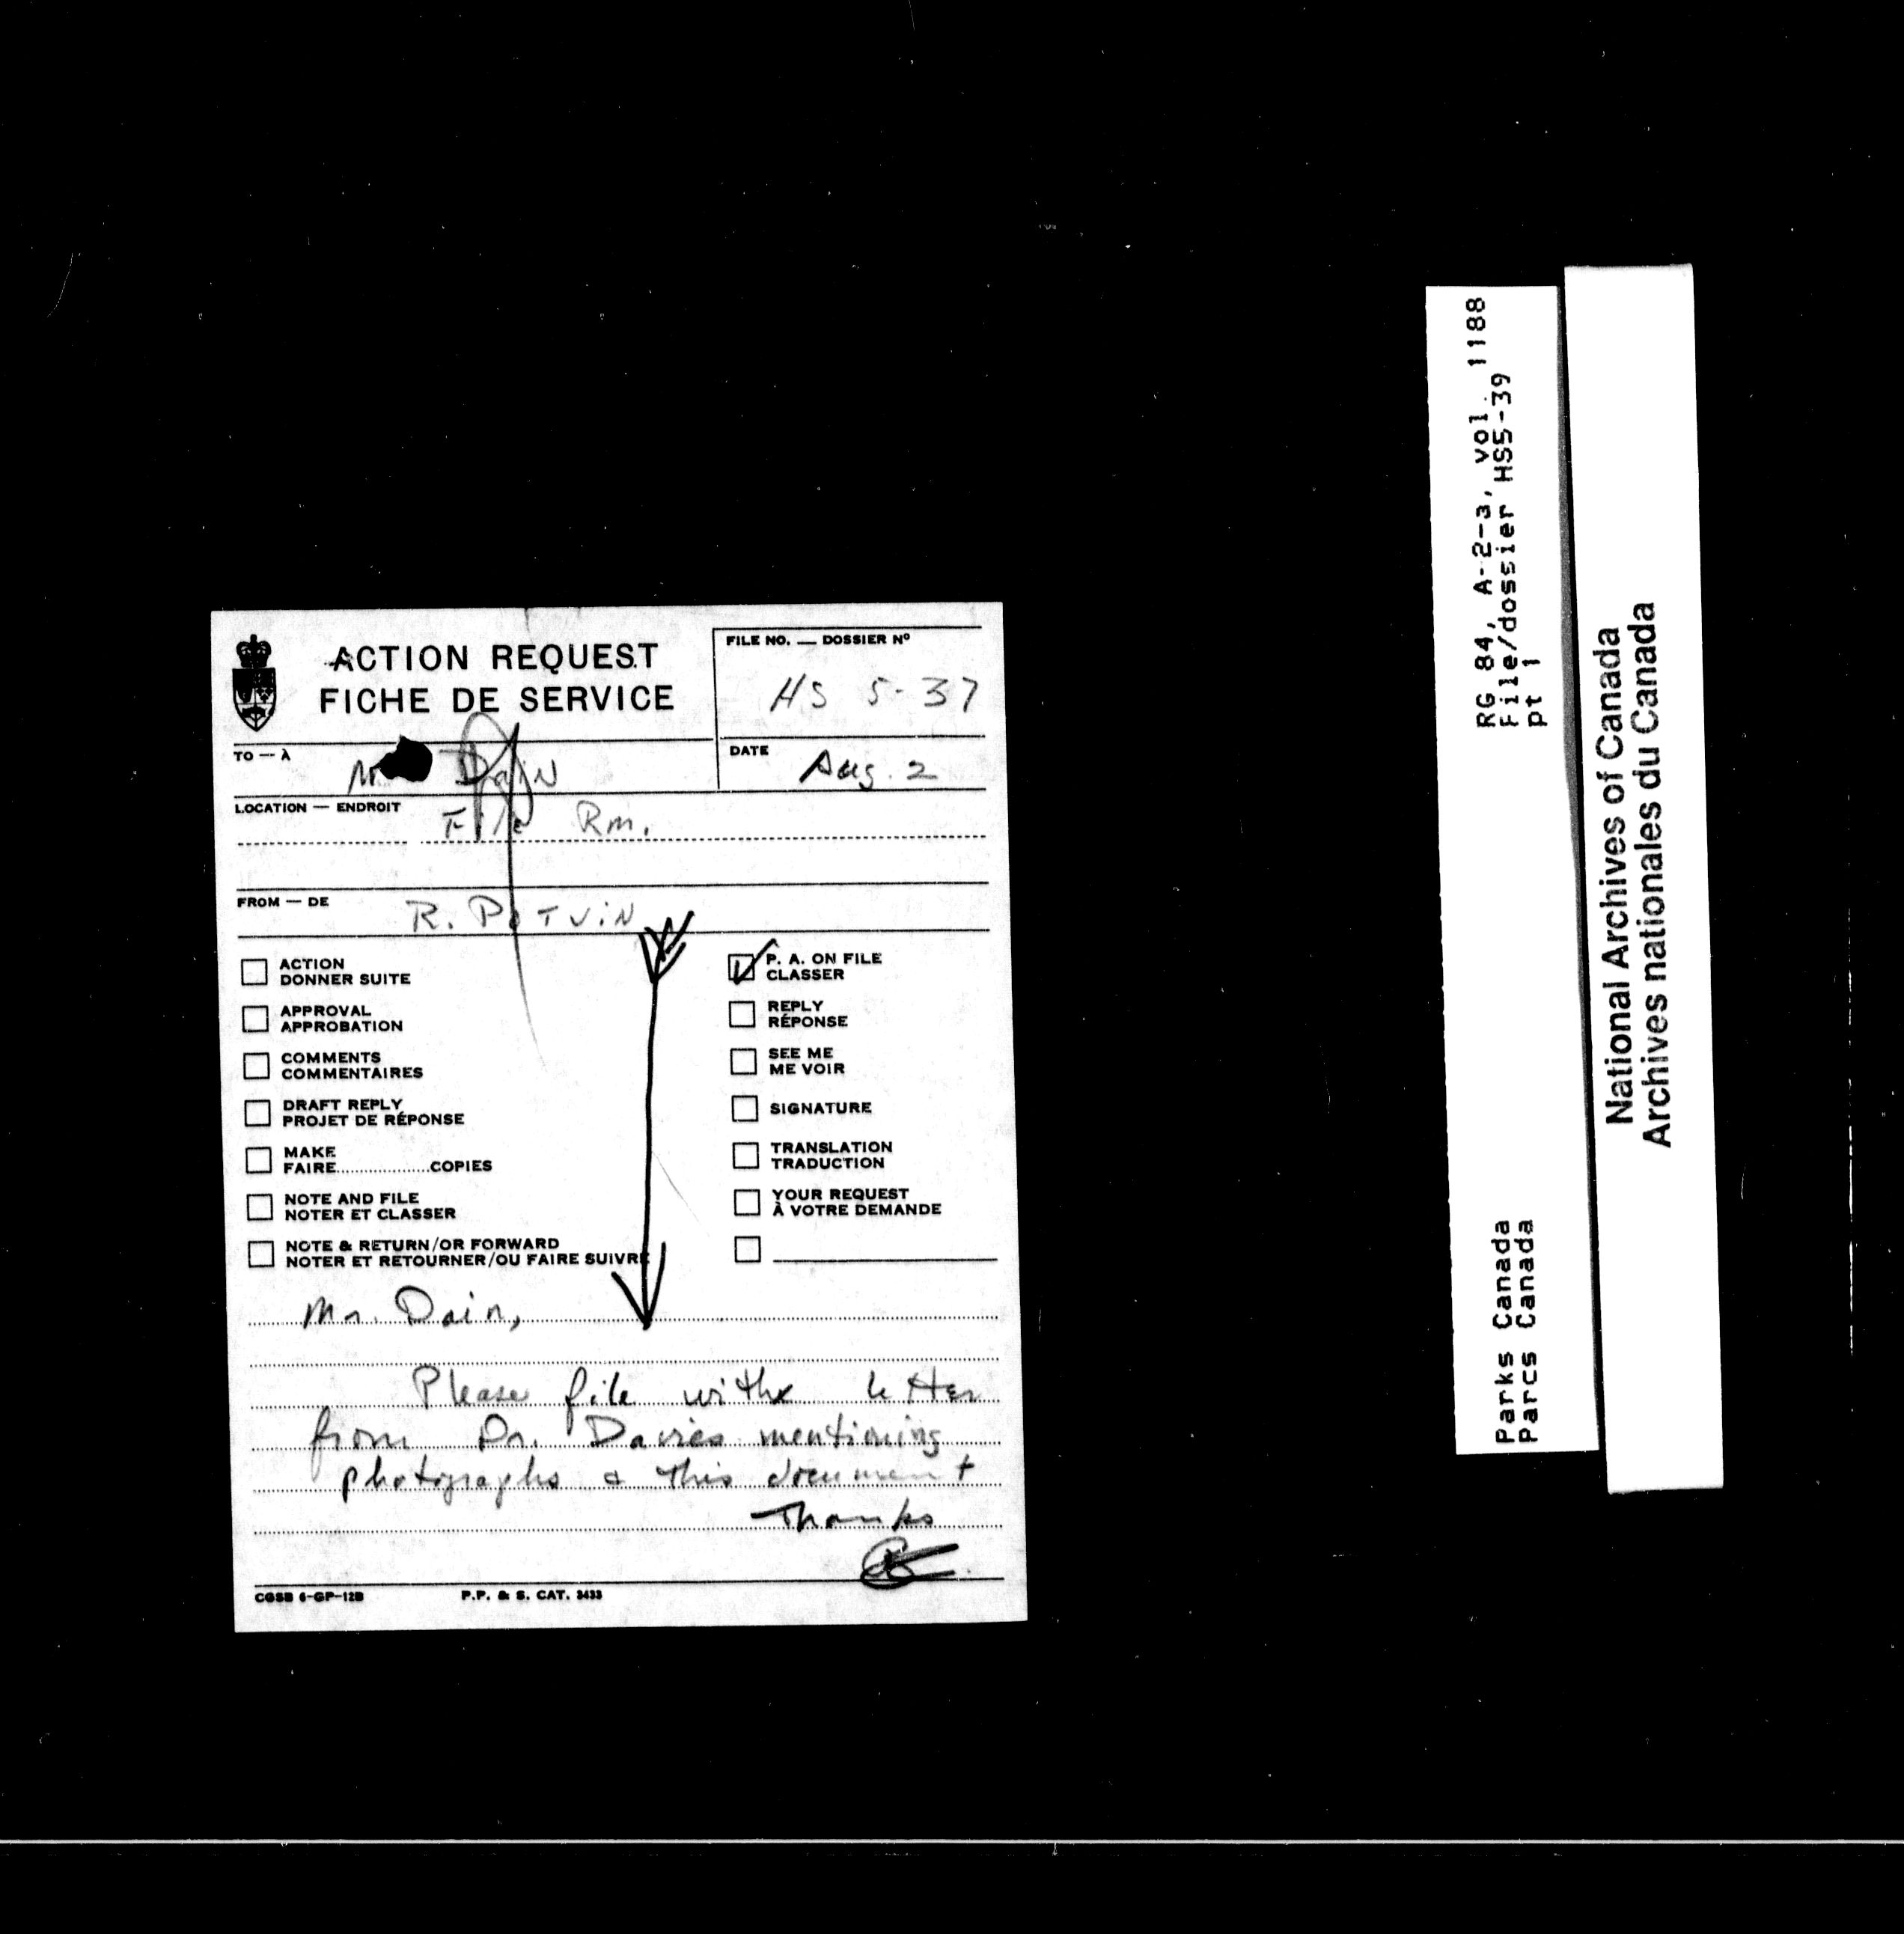 ACTION REQUEST
FICHE DE SERVICE
FILE NO. — DOSSIER Nº
HS 5-37
TO — À
Dain
DATE
Aug. 2
LOCATION — ENDROIT
File Rm.
FROM — DE
R. POTVIN
ACTION
DONNER SUITE
APPROVAL
APPROBATION
COMMENTS
COMMENTAIRES
DRAFT REPLY
PROJET DE RÉPONSE
MAKE
FAIRE....................COPIES
NOTE AND FILE
NOTER ET CLASSER
NOTE & RETURN/OR FORWARD
NOTER ET RETOURNER/OU FAIRE SUIVRE
P. A. ON FILE
CLASSER
REPLY
RÉPONSE
SEE ME
ME VOIR
SIGNATURE
TRANSLATION
TRADUCTION
YOUR REQUEST
À VOTRE DEMANDE
Mr. Dain,
Please file with letter
from Dr. Davies mentioning
photographs & this document
Thanks
CGSB 6-GP-12B
P.P. & S. CAT. 3433
RG 84, A-2-3, vol. 1188
File/dossier HS5-39
pt 1
Parks Canada
Parcs Canada
National Archives of Canada
Archives nationales du Canada